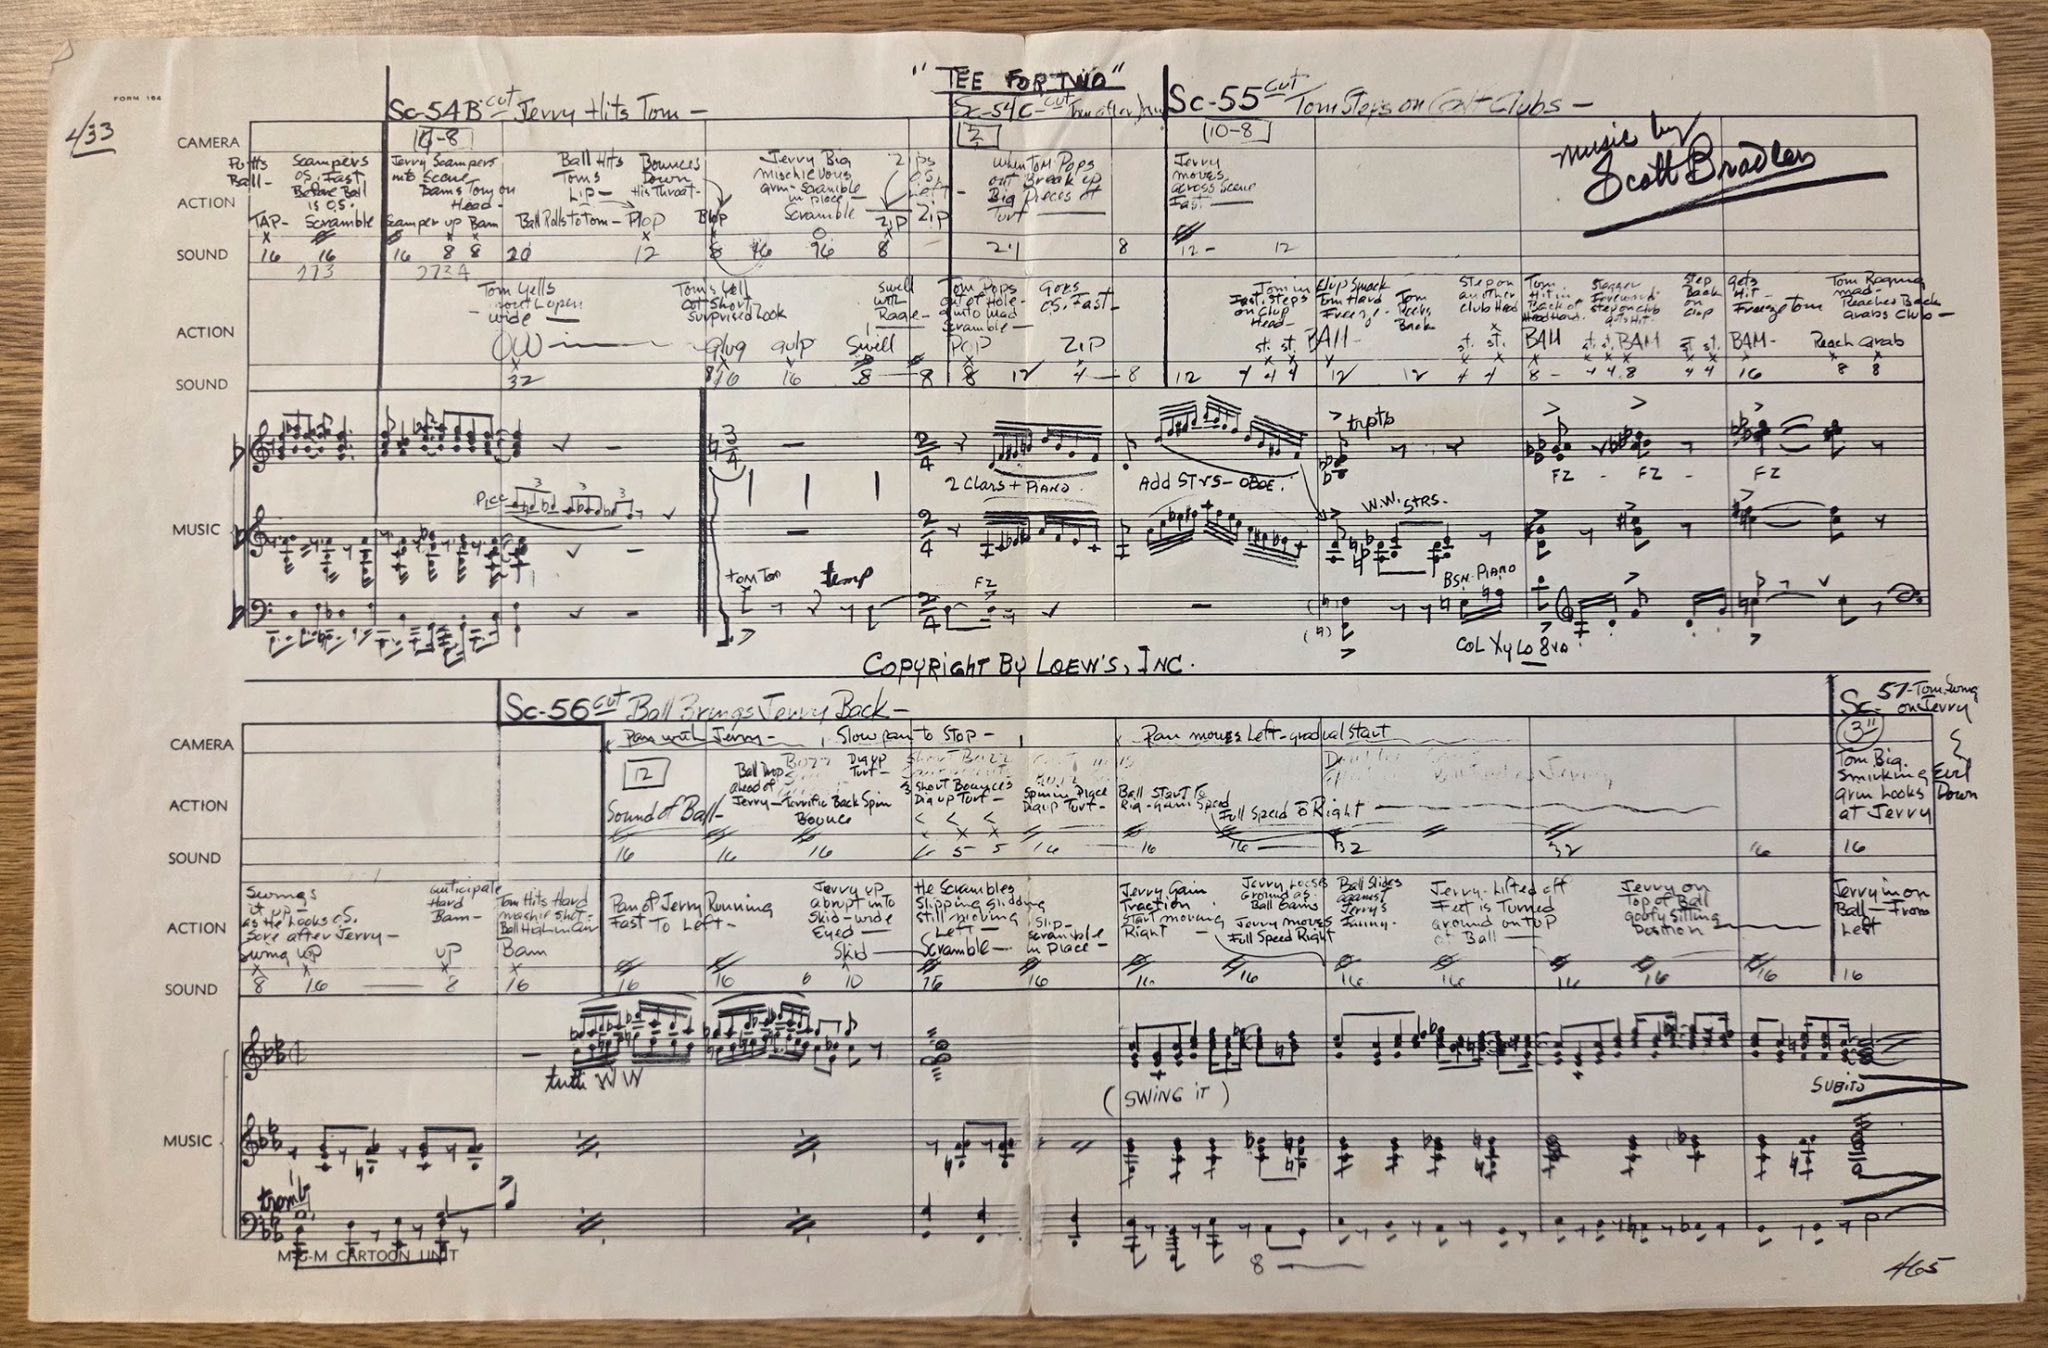 "TEE FOR TWO"
FORM 164
433
Sc-54B cut Jerry Hits Tom -
Sc-54C - cut
Sc-55 cut Tom Steps on Golf Clubs -
CAMERA
10-8
Music by
Scott Bradley
ACTION
Putts Ball -
Scampers O.S. Fast Before Ball is O.S.
Jerry Scampers into Scene
Bams Tom on Head -
Ball Hits Tom's Lip -
Bounces Down His Throat -
Jerry Big mischievous grin - scramble in place -
When Tom Pops out Break up Big Pieces of Turf
Jerry moves across scene Fast
TAP - Scramble Scamper up Bam Ball Rolls to Tom - Plop Blop Scramble Zip
SOUND
16 16 16 8 8 20 12 8 16 96 8 24 8 12 - 12
ACTION
Tom Yells mouth open - wide
Tom's Yell cut short surprised look
Swell with Rage -
Tom Pops out of Hole - into mad scramble -
Goes O.S. Fast -
Tom in Fast. Steps on Club Head -
Club Smack Tom Hard Freeze -
Tom Back
Step on another club Head
Tom Hit in Back of Head Hard.
Stagger Foreward step on club gets Hit -
Step Back on Club
Gets Hit - Freeze Tom
Tom Raging mad - Reaches Back Grabs Club -
OW glug gulp Swell POP ZIP st. st. BAM - st. st. BAM st. st. BAM st st. BAM - Reach Grab
SOUND
32 16 16 8 8 8 12 4 8 12 4 4 4 12 12 4 4 8 - 4 4 8 4 4 16 8 8
MUSIC
Picc
3 3 3
tom Tom
temp
FZ
2 Clars + PIANO.
Add STRS - OBOE.
trpts
W.W. STRS.
BSN. PIANO
COL XYLO 8VA
FZ - FZ - FZ
COPYRIGHT BY LOEW'S, INC.
Sc-56 cut Ball Brings Jerry Back -
Sc- 57 - Tom Swing on Jerry
CAMERA
Pan with Jerry - Slow pan to Stop - Pan moves Left - gradual start
3"
ACTION
12
Sound of Ball -
Ball Drop ahead of Jerry - Terrific Back Spin Bounce
Dig up Turf -
3 Short Bounces Dig up Turf -
Spin in Place Dig up Turf -
Ball Start To Rig - Gain Speed
Full Speed To Right
Tom Big. Smirking Evil grin Looks Down at Jerry
SOUND
16 16 16 6 5 5 16 16 16 32 32 16 16
ACTION
Swings it up - as He Looks O.S. Sore after Jerry -
Anticipate Hard Bam -
Tom Hits Hard
Ball High in Air
Pan of Jerry Running Fast To Left -
Jerry up abrupt into Skid - wide Eyed
He Scrambles Slipping gliding still moving Left -
Slip - scramble in Place -
Jerry Gain Traction. Start moving Right
Jerry Loses Ground as Ball Gains
Jerry moves Full Speed Right
Ball Slides against Jerry's Fanny -
Jerry - Lifted off Feet is Turned around on Top of Ball
Jerry on Top of Ball goofy Sitting Position
Jerry in on Ball - From Left
Swing up up Bam Skid Scramble -
SOUND
8 16 8 16 16 16 6 10 16 16 16 16 16 16 16 16 16 16
tutti WW
(SWING IT)
SUBITO
MUSIC
tromb.
8
M-G-M CARTOON UNIT
465